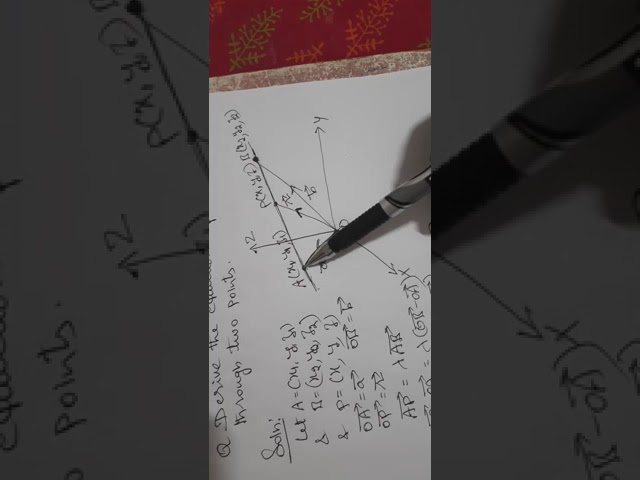 Q. Derive the equation
through two points.
Soln:
Let A = (x₁, y₁, z₁)
& B = (x₂, y₂, z₂)
& P = (x, y, z)
OA⃗ = a⃗ OB⃗ = b⃗
OP⃗ = r⃗
AP⃗ = λ AB⃗
λ(OB⃗ - OA⃗)
Z
A(x₁, y₁, z₁)
P(x, y, z)
B(x₂, y₂, z₂)
r⃗
b⃗
Y
X